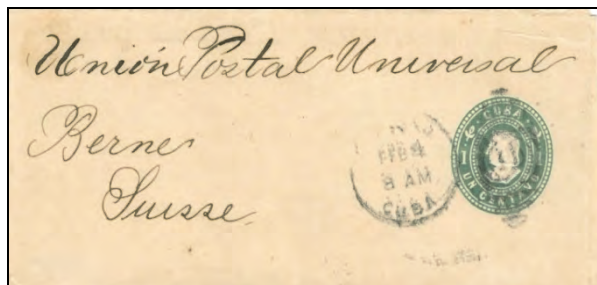 Unión Postal Universal
Berne
Suisse
FEB 4
8 AM
CUBA
CUBA
UN CENTAVO